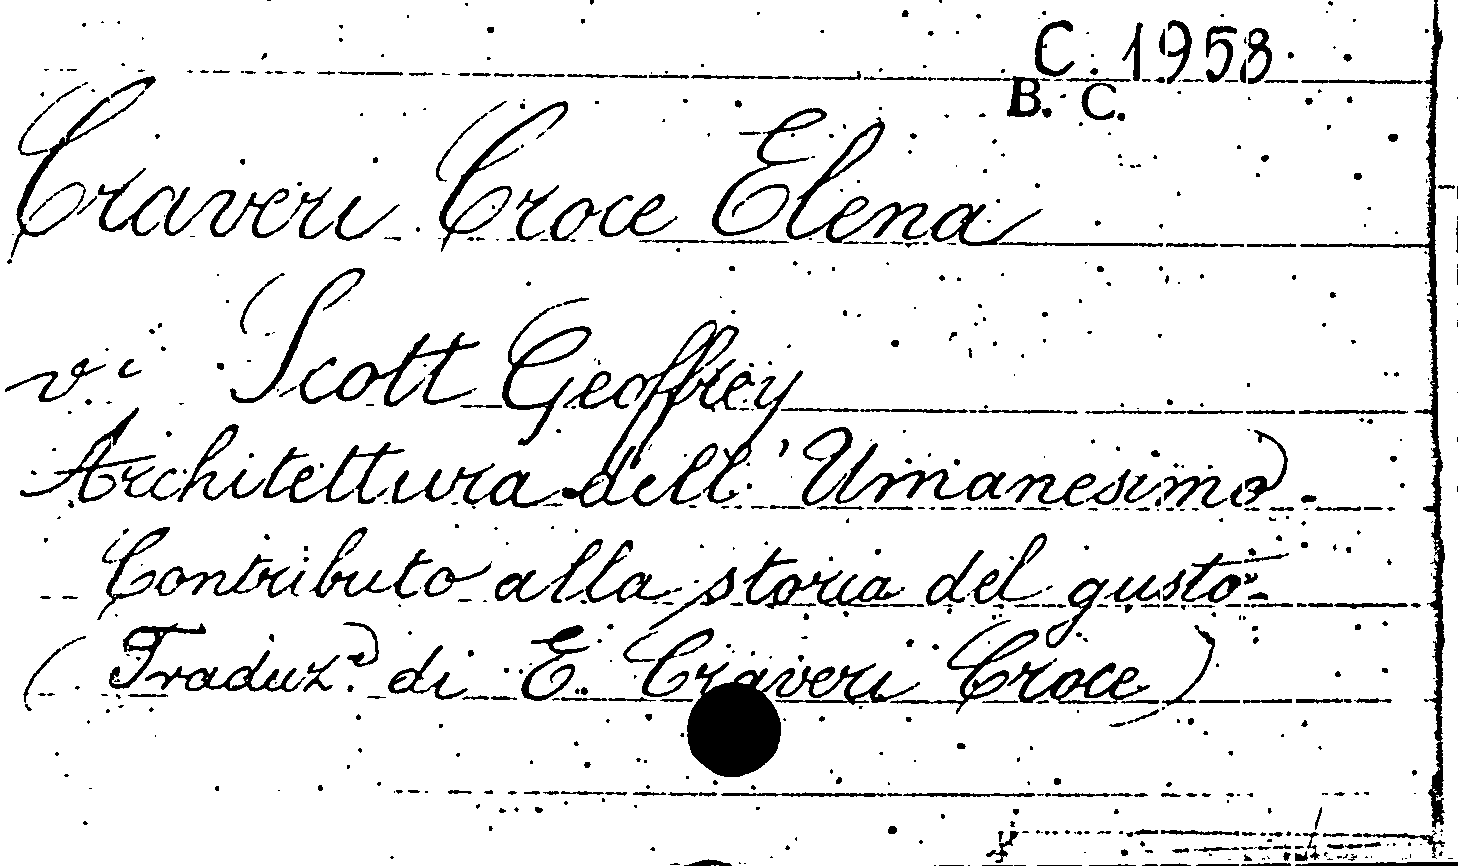 C. 1958
B. C.
Craveri Croce Elena
v. Scott Geoffrey
Architettura dell'Umanesimo.
Contributo alla storia del gusto-
(Traduz.e di E. Craveri Croce)